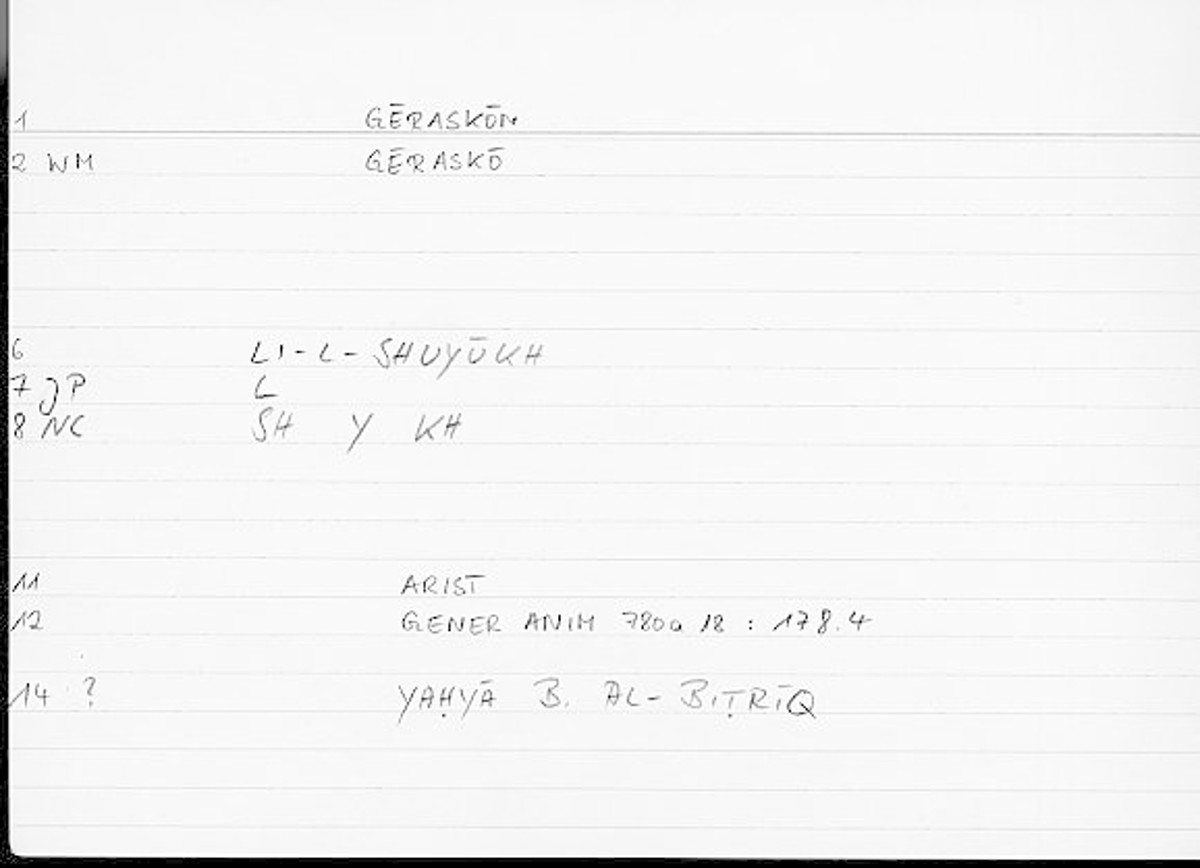 1 GĒRASKŌN
2 WM GĒRASKŌ
6 LI-L-SHUYŪKH
7 JP L
8 NC SH Y KH
11 ARIST
12 GENER ANIM 780a 18 : 178.4
14 ? YAḤYĀ B. AL-BIṬRĪQ